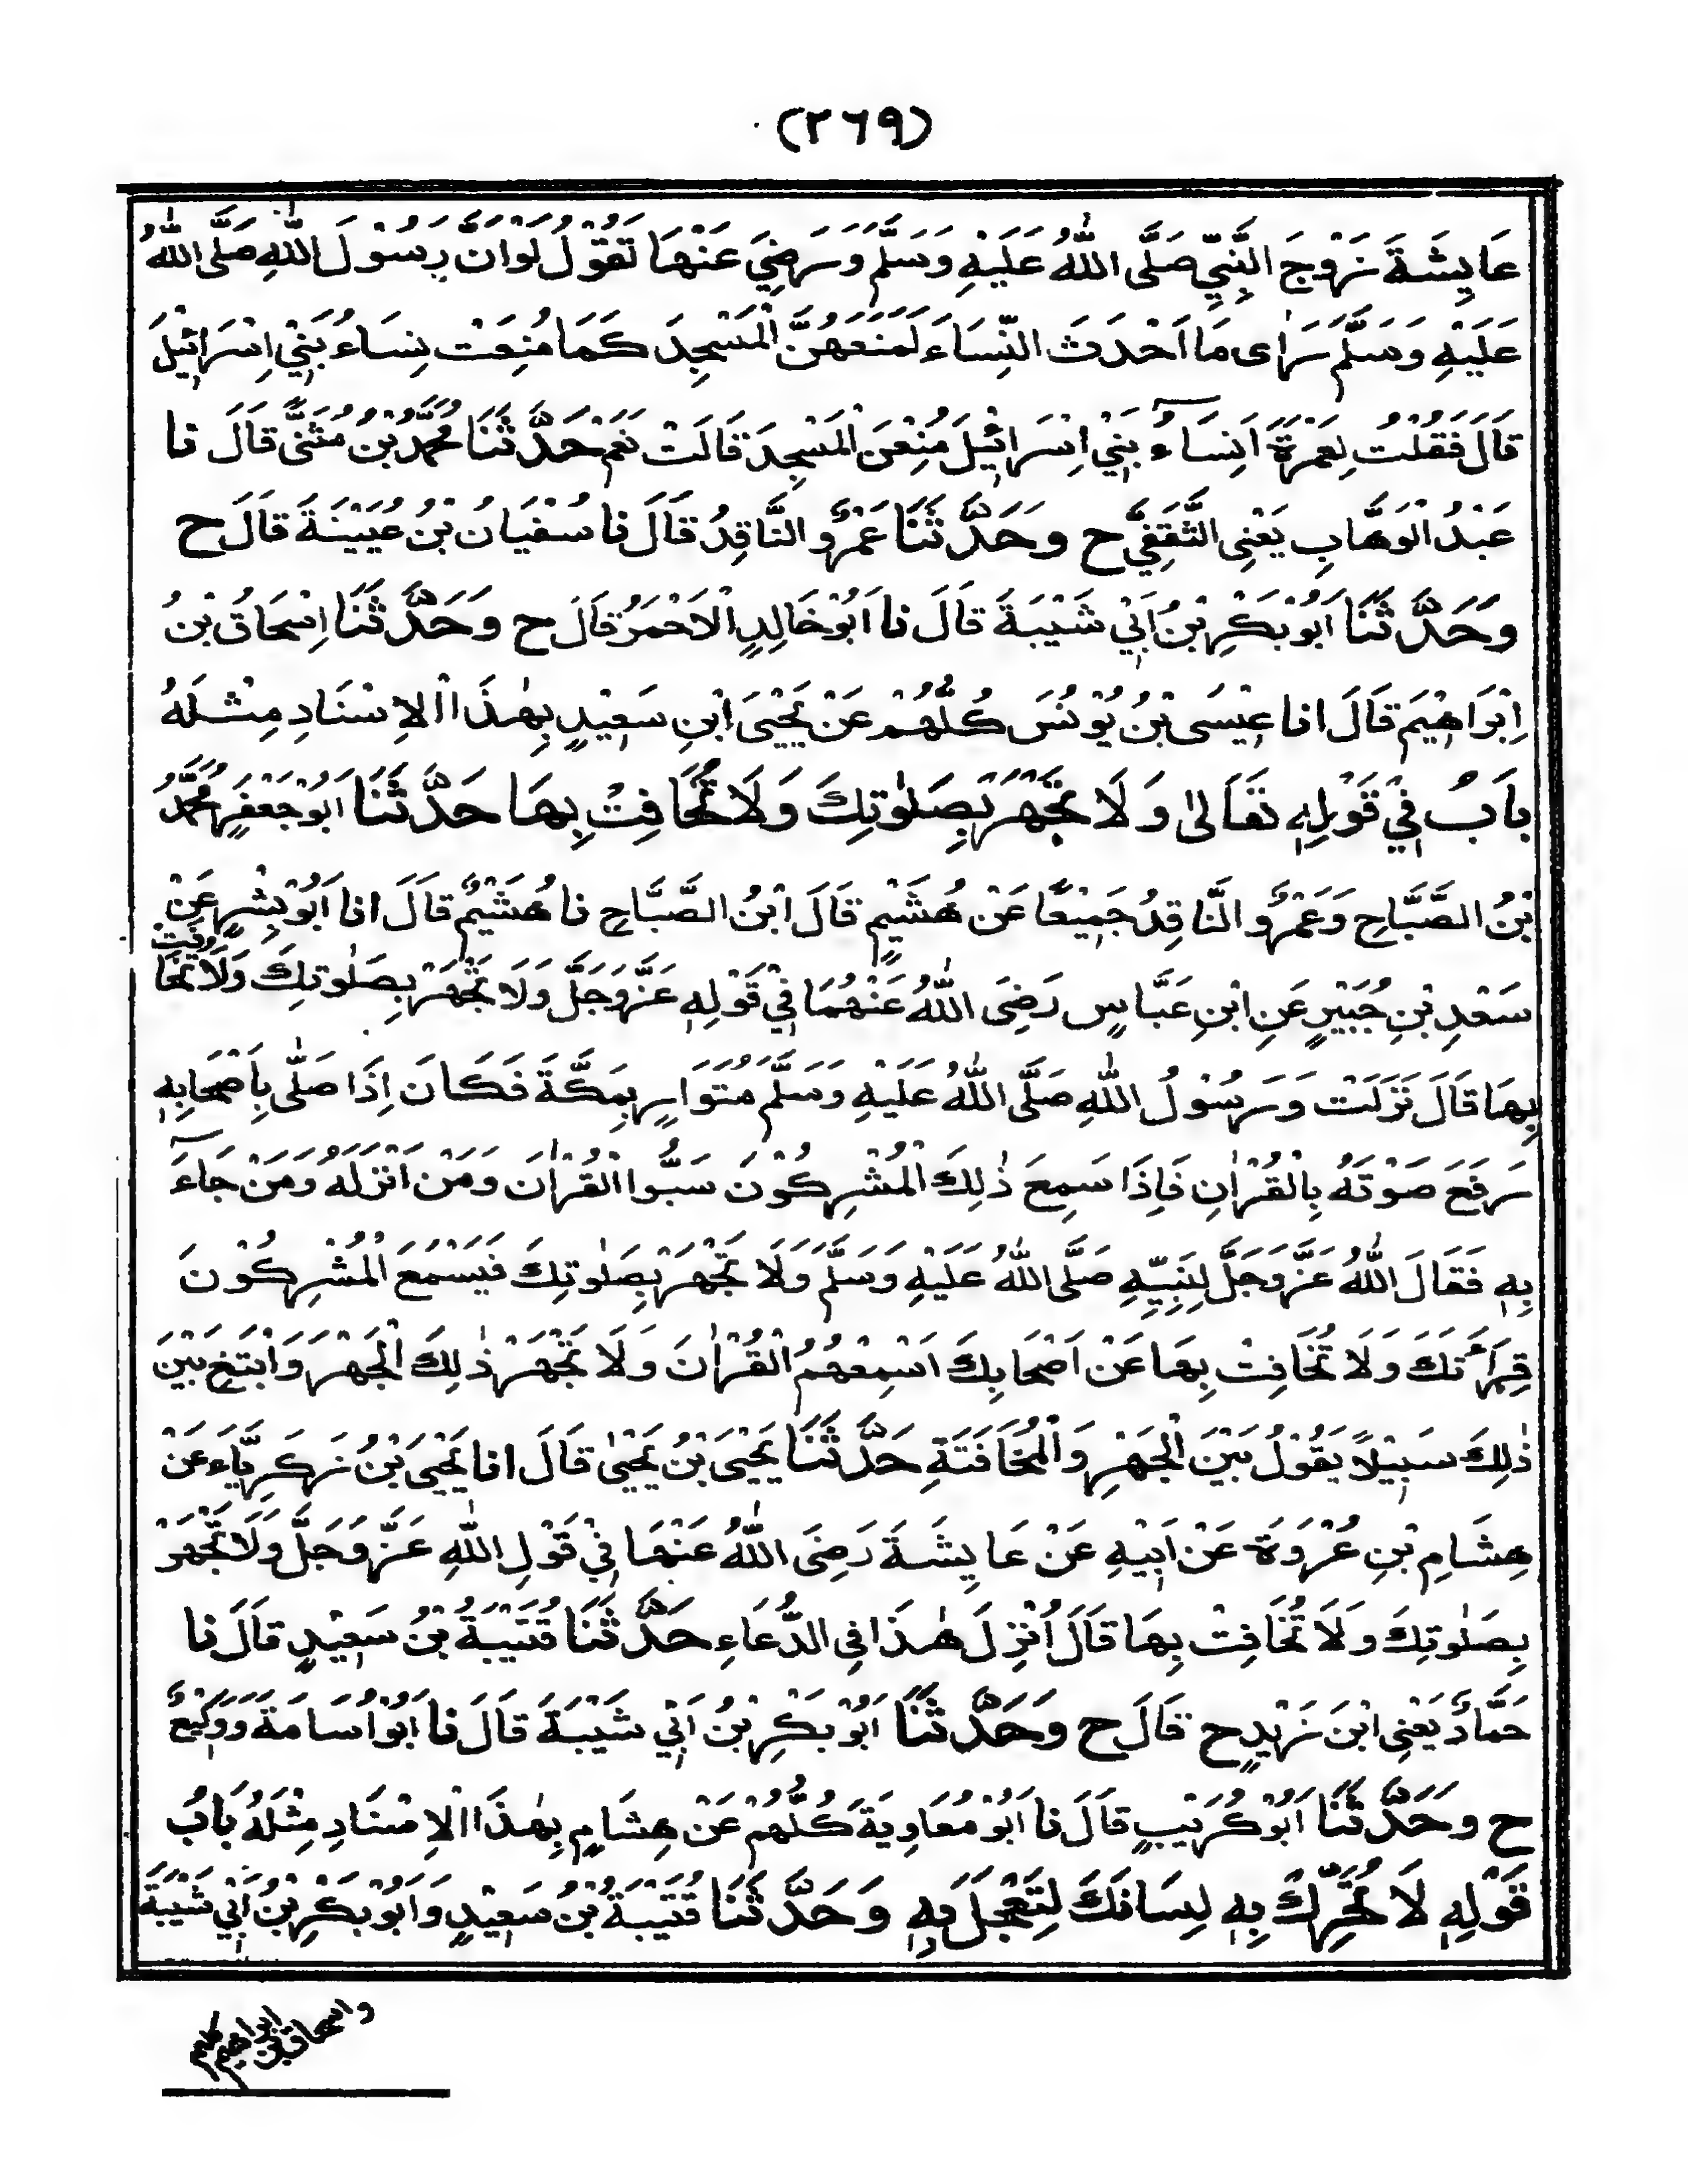 (٢٦٩)
عَايِشَةَ زَوْجَ النَّبِيِّ صَلَّى اللّٰهُ عَلَيْهِ وَسَلَّمَ وَرَضِيَ عَنْهَا تَقُوْلُ لَوْ اَنَّ رَسُوْلَ اللّٰهِ صَلَّى اللّٰهُ
عَلَيْهِ وَسَلَّمَ رَاٰى مَا اَحْدَثَ النِّسَاءَ لَمَنَعَهُنَّ الْمَسْجِدَ كَمَا مُنِعَتْ نِسَاءُ بَنِيْ اِسْرَائِيْلَ
قَالَ فَقُلْتُ لِعَمْرَةَ اَنِسَآءُ بَنِيْ اِسْرَائِيْلَ مُنِعْنَ الْمَسْجِدَ قَالَتْ نَعَمْ حَدَّثَنَا مُحَمَّدُ بْنُ مُثَنًّى قَالَ نا
عَبْدُ الْوَهَّابِ يَعْنِى الثَّقَفِيَّ ح وَحَدَّثَنَا عَمْرٌو النَّاقِدُ قَالَ نا سُفْيَانُ بْنُ عُيَيْنَةَ قَالَ ح
وَحَدَّثَنَا اَبُوْ بَكْرِ بْنُ اَبِيْ شَيْبَةَ قَالَ نا اَبُوْ خَالِدٍ الْاَحْمَرُ قَالَ ح وَحَدَّثَنَا اِسْحَاقُ بْنُ
اِبْرَاهِيْمَ قَالَ انا عِيْسَى بْنُ يُوْنُسَ كُلُّهُمْ عَنْ يَحْيَى ابْنِ سَعِيْدٍ بِهٰذَا الْاِسْنَادِ مِثْلَهُ
بَابُ فِيْ قَوْلِهٖ تَعَالىٰ وَلَا تَجْهَرْ بِصَلٰوتِكَ وَلَا تُخَافِتْ بِهَا حَدَّثَنَا اَبُوْ جَعْفَرٍ مُحَمَّدُ
بْنُ الصَّبَّاحِ وَعَمْرٌو النَّاقِدُ جَمِيْعًا عَنْ هُشَيْمٍ قَالَ ابْنُ الصَّبَّاحِ نا هُشَيْمٌ قَالَ انا اَبُوْ بِشْرٍ عَنْ
سَعْدِ بْنِ جُبَيْرٍ عَنِ ابْنِ عَبَّاسٍ رَضِىَ اللّٰهُ عَنْهُمَا فِيْ قَوْلِهٖ عَزَّ وَجَلَّ وَلَا تَجْهَرْ بِصَلٰوتِكَ وَلَا تُخَافِتْ
بِهَا قَالَ نَزَلَتْ وَرَسُوْلُ اللّٰهِ صَلَّى اللّٰهُ عَلَيْهِ وَسَلَّمَ مُتَوَارٍ بِمَكَّةَ فَكَانَ اِذَا صَلّٰى بِاَصْحَابِهٖ
رَفَعَ صَوْتَهُ بِالْقُرْاٰنِ فَاِذَا سَمِعَ ذٰلِكَ الْمُشْرِكُوْنَ سَبُّوا الْقُرْاٰنَ وَمَنْ اَنْزَلَهُ وَمَنْ جَآءَ
بِهٖ فَقَالَ اللّٰهُ عَزَّ وَجَلَّ لِنَبِيِّهٖ صَلَّى اللّٰهُ عَلَيْهِ وَسَلَّمَ وَلَا تَجْهَرْ بِصَلٰوتِكَ فَيَسْمَعَ الْمُشْرِكُوْنَ
قِرَاءَتَكَ وَلَا تُخَافِتْ بِهَا عَنْ اَصْحَابِكَ اَسْمِعْهُمُ الْقُرْاٰنَ وَلَا تَجْهَرْ ذٰلِكَ الْجَهْرَ وَابْتَغِ بَيْنَ
ذٰلِكَ سَبِيْلًا يَقُوْلُ بَيْنَ الْجَهْرِ وَالْمُخَافَتَةِ حَدَّثَنَا يَحْيَى بْنُ يَحْيٰى قَالَ انا يَحْيَى بْنُ زَكَرِيَّاءَ عَنْ
هِشَامِ بْنِ عُرْوَةَ عَنْ اَبِيْهِ عَنْ عَايِشَةَ رَضِىَ اللّٰهُ عَنْهَا فِيْ قَوْلِ اللّٰهِ عَزَّ وَجَلَّ وَلَا تَجْهَرْ
بِصَلٰوتِكَ وَلَا تُخَافِتْ بِهَا قَالَ اُنْزِلَ هٰذَا فِى الدُّعَاءِ حَدَّثَنَا قُتَيْبَةُ بْنُ سَعِيْدٍ قَالَ نا
حَمَّادٌ يَعْنِى ابْنَ زَيْدٍ ح قَالَ ح وَحَدَّثَنَا اَبُوْ بَكْرِ بْنُ اَبِيْ شَيْبَةَ قَالَ نا اَبُوْ اُسَامَةَ وَوَكِيْعٌ
ح وَحَدَّثَنَا اَبُوْ كُرَيْبٍ قَالَ نا اَبُوْ مُعَاوِيَةَ كُلُّهُمْ عَنْ هِشَامٍ بِهٰذَا الْاِسْنَادِ مِثْلَهُ بَابُ
قَوْلِهٖ لَا تُحَرِّكْ بِهٖ لِسَانَكَ لِتَعْجَلَ بِهٖ وَحَدَّثَنَا قُتَيْبَةُ بْنُ سَعِيْدٍ وَاَبُوْ بَكْرِ بْنُ اَبِيْ شَيْبَةَ
واسحاق بن ابراهيم كلهم